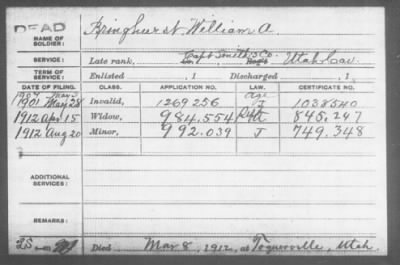 DEAD
NAME OF SOLDIER: Bringhurst William A.
SERVICE: Late rank, Capt Smith's Co. Utah Cav.
TERM OF SERVICE: Enlisted , 1 Discharged , 1
DATE OF FILING. CLASS. APPLICATION NO. LAW. CERTIFICATE NO.
1907 Age
1901 May 28 Invalid, 1269256 J 1038540
1912 Apr 15 Widow, 984.554 845,247
1912 Aug 20 Minor, 992.039 J 749.348
ADDITIONAL SERVICES:
REMARKS:
Died Mar 8, 1912, at Toquerville, Utah.